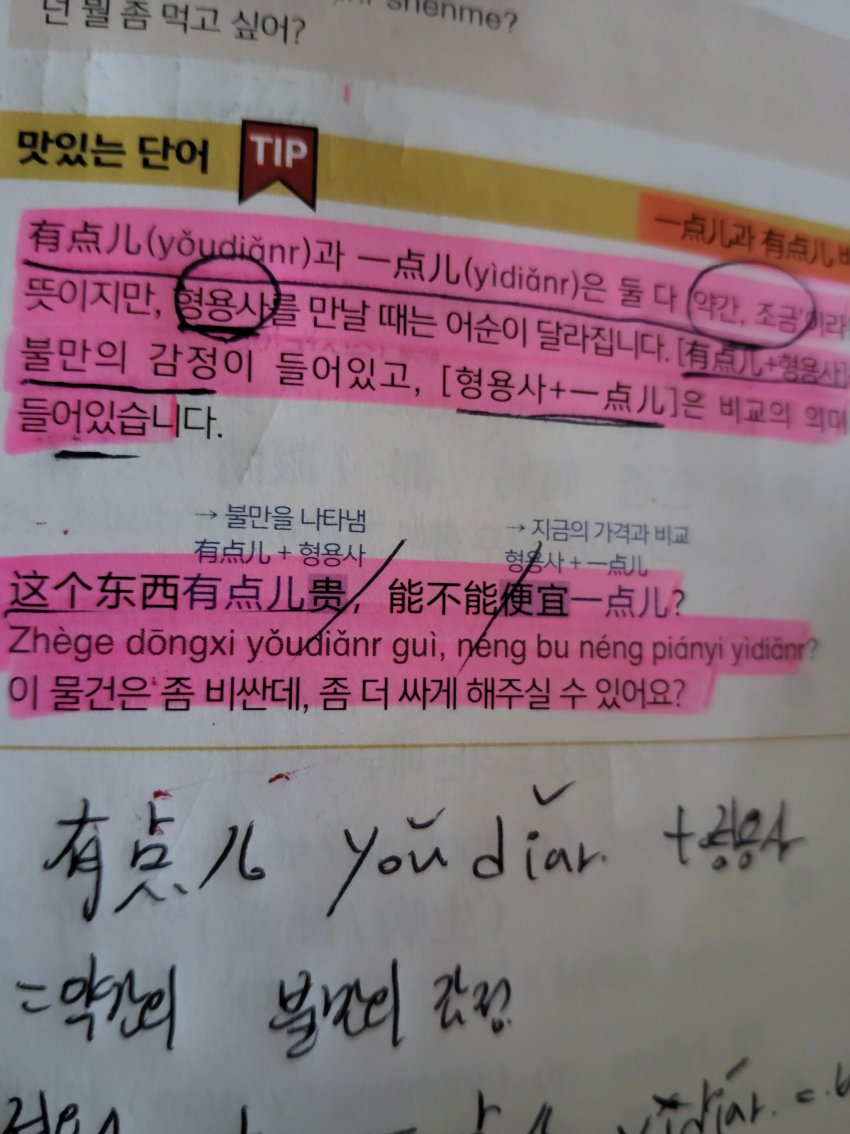 뭘 좀 먹고 싶어?
shénme?
맛있는 단어 TIP
一点儿과 有点儿
有点儿(yǒudiǎnr)과 一点儿(yìdiǎnr)은 둘 다 '약간, 조금'이라
뜻이지만, 형용사를 만날 때는 어순이 달라집니다. [有点儿+형용사]
불만의 감정이 들어있고, [형용사+一点儿]은 비교의 의미
들어있습니다.
→ 불만을 나타냄 → 지금의 가격과 비교
有点儿 + 형용사 형용사 + 一点儿
这个东西有点儿贵, 能不能便宜一点儿?
Zhège dōngxi yǒudiǎnr guì, néng bu néng piányi yìdiǎnr?
이 물건은 좀 비싼데, 좀 더 싸게 해주실 수 있어요?
有点儿 yǒu diǎr. + 형용사
= 약간의 불만의 감정.